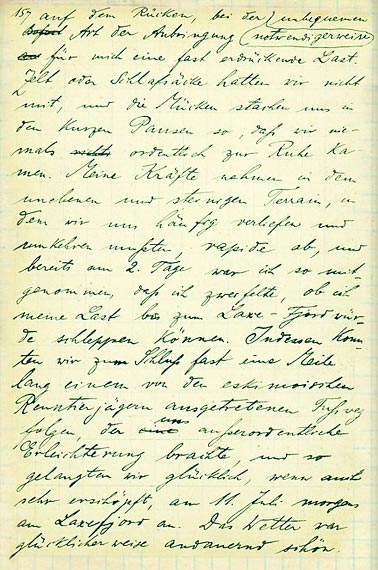 157 auf dem Rücken, bei der (unbequemen
Art der Anbringung (notwendigerweise)
für mich eine fast erdrückende Last.
Zelt oder Schlafsäcke hatten wir nicht
mit, und die Mücken stachen uns in
den kurzen Pausen so, daß wir nie-
mals nicht ordentlich zur Ruhe ka-
men. Meine Kräfte nahmen in dem
unebenen und steinigen Terrain, in
dem wir uns häufig verliefen und
umkehren mußten, rapide ab, und
bereits am 2. Tage war ich so mit-
genommen, daß ich zweifelte, ob ich
meine Last bis zum Laxe-Fjord wür-
de schleppen können. Indessen konn-
ten wir zum Schluß fast eine Meile
lang einem von den eskimoischen
Renntierjägern ausgetretenen Fußweg
folgen, der eine uns außerordentliche
Erleichterung brachte, und so
gelangten wir glücklich, wenn auch
sehr erschöpft, am 11. Juli morgens
am Laxefjord an. Das Wetter war
glücklicherweise andauernd schön.